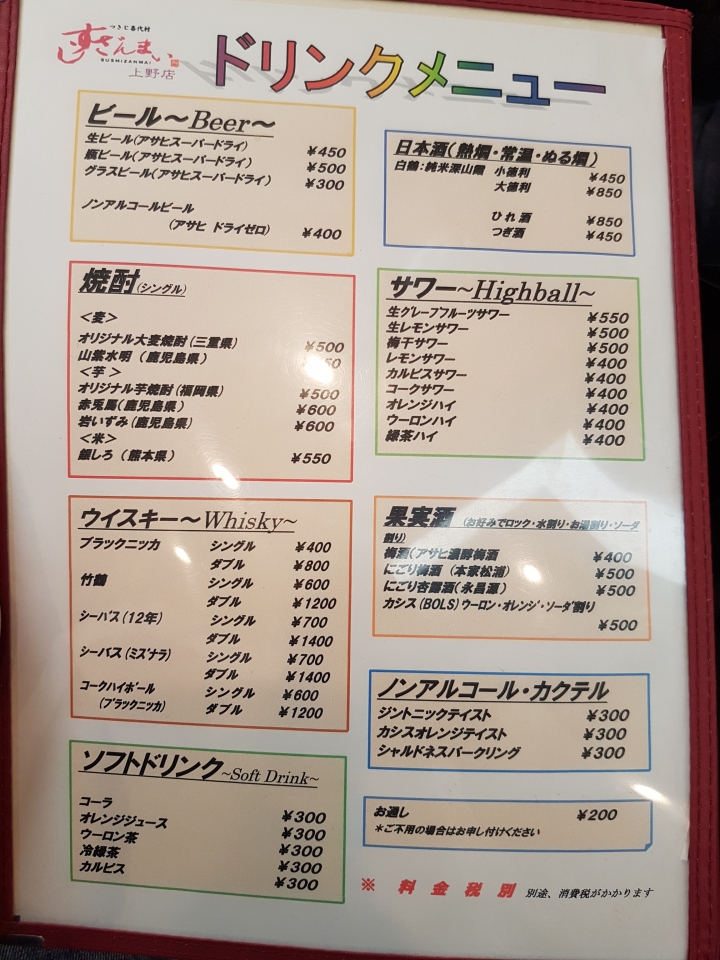 つきじ喜代村
すしざんまい
SUSHIZANMAI
上野店
ドリンクメニュー
ビール～Beer～
生ビール(アサヒスーパードライ) ¥450
瓶ビール(アサヒスーパードライ) ¥500
グラスビール(アサヒスーパードライ) ¥300
ノンアルコールビール
(アサヒ ドライゼロ) ¥400
焼酎(シングル)
＜麦＞
オリジナル大麦焼酎(三重県) ¥500
山紫水明（鹿児島県）
＜芋＞
オリジナル芋焼酎(福岡県) ¥500
赤兎馬(鹿児島県) ¥600
岩いずみ(鹿児島県) ¥600
＜米＞
銀しろ（熊本県） ¥550
ウイスキー～Whisky～
ブラックニッカ シングル ¥400
ダブル ¥800
竹鶴 シングル ¥600
ダブル ¥1200
シーバス(12年) シングル ¥700
ダブル ¥1400
シーバス(ミズナラ) シングル ¥700
ダブル ¥1400
コークハイボール シングル ¥600
(ブラックニッカ) ダブル ¥1200
ソフトドリンク～Soft Drink～
コーラ ¥300
オレンジジュース ¥300
ウーロン茶 ¥300
冷緑茶 ¥300
カルピス ¥300
日本酒(熱燗・常温・ぬる燗)
白鶴：純米 小徳利 ¥450
大徳利 ¥850
ひれ酒 ¥850
つぎ酒 ¥450
サワー～Highball～
生グレープフルーツサワー ¥550
生レモンサワー ¥500
梅干サワー ¥500
レモンサワー ¥400
カルピスサワー ¥400
コークサワー ¥400
オレンジハイ ¥400
ウーロンハイ ¥400
緑茶ハイ ¥400
果実酒 (お好みでロック・水割り・お湯割り・ソーダ
割り)
梅酒(アサヒ濃醇梅酒 ¥400
にごり梅酒（本家松浦） ¥500
にごり杏露酒(永昌源） ¥500
カシス(BOLS)ウーロン・オレンジ・ソーダ割り
¥500
ノンアルコール・カクテル
ジントニックテイスト ¥300
カシスオレンジテイスト ¥300
シャルドネスパークリング ¥300
お通し ¥200
＊ご不用の場合はお申し付けください
※ 料金税別 別途、消費税がかかります